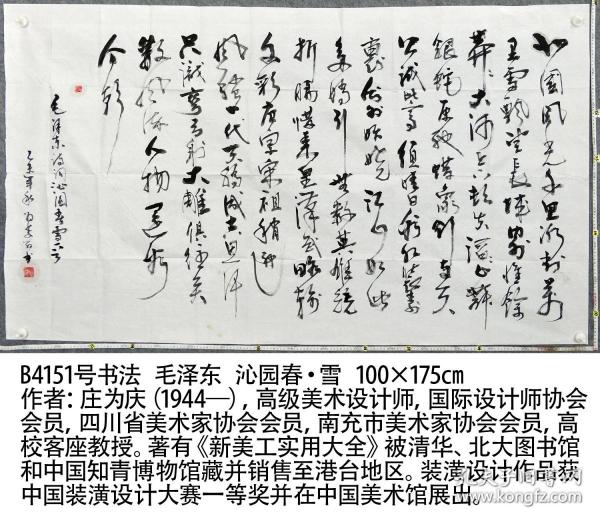 北国风光千里冰封万
里雪飘望长城内外惟余
莽々大河上下顿失滔々山舞
银蛇原驰蜡象欲与天
公试比高须晴日看红装素
裹分外妖娆江山如此
多娇引无数英雄竞
折腰惜秦皇汉武略输
文彩唐宗宋祖稍逊
风骚一代天骄成吉思汗
只识弯弓射大雕俱往矣
数风流人物还看
今朝
毛泽东诗词沁园春雪
乙未年秋为庆书
B4151号书法 毛泽东 沁园春•雪 100×175cm
作者：庄为庆（1944—），高级美术设计师，国际设计师协会
会员，四川省美术家协会会员，南充市美术家协会会员，高
校客座教授。著有《新美工实用大全》被清华、北大图书馆
和中国知青博物馆藏并销售至港台地区。装潢设计作品获
中国装潢设计大赛一等奖并在中国美术馆展出。
孔夫子旧书网